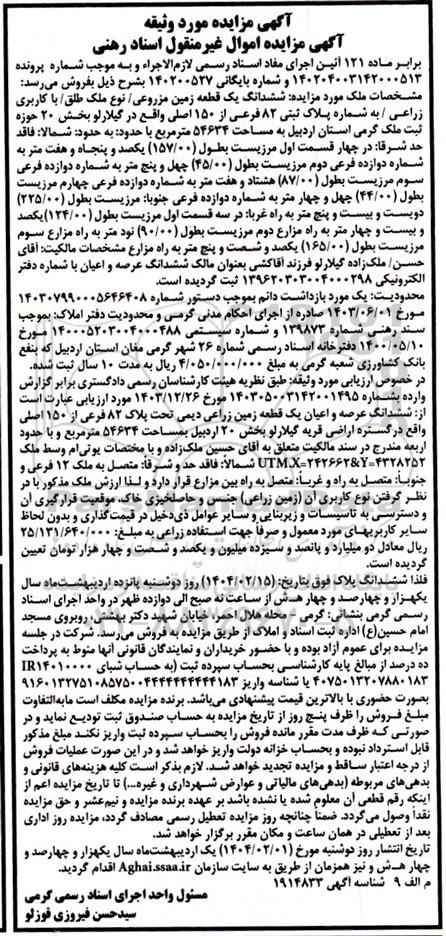 آگهی مزایده مورد وثیقه
آگهی مزایده اموال غیرمنقول اسناد رهنی
برابر ماده ۱۲۱ آئین اجرای مفاد اسناد رسمی لازم‌الاجراء و به موجب شماره پرونده
۱۴۰۲۰۴۰۰۳۱۴۲۰۰۰۵۱۳ و شماره بایگانی ۱۴۰۲۰۰۵۲۷ بشرح ذیل بفروش می‌رسد:
مشخصات ملک مورد مزایده: ششدانگ یک قطعه زمین مزروعی/ نوع ملک طلق/ با کاربری
زراعی/ به شماره پلاک ثبتی ۸۲ فرعی از ۱۵۰ اصلی واقع در گیلارلو بخش ۲۰ حوزه
ثبت ملک گرمی استان اردبیل به مساحت ۵۴۶۳۴ مترمربع با حدود: به حدود: شمالا: فاقد
حد شرقا: در چهار قسمت اول مرزیست بطول (۱۵۷/۰۰) یکصد و پنجاه و هفت متر به
شماره دوازده فرعی دوم مرزیست بطول (۴۵/۰۰) چهل و پنج متر به شماره دوازده فرعی
سوم مرزیست بطول (۸۷/۰۰) هشتاد و هفت متر به شماره دوازده فرعی چهارم مرزیست
بطول (۴۴/۰۰) چهل و چهار متر به شماره دوازده فرعی جنوبا: مرزیست بطول (۲۲۵/۰۰)
دویست و بیست و پنج متر به راه غربا: در سه قسمت اول مرزیست بطول (۱۲۴/۰۰) یکصد
و بیست و چهار متر به راه مزارع دوم مرزیست بطول (۹۰/۰۰) نود متر به راه مزارع سوم
مرزیست بطول (۱۶۵/۰۰) یکصد و شصت و پنج متر به راه مزارع مشخصات مالکیت: آقای
حسن/ ملک‌زاده گیلارلو فرزند آقاکشی بعنوان مالک ششدانگ عرصه و اعیان با شماره دفتر
الکترونیکی ۱۳۹۶۲۰۳۰۳۰۰۴۰۰۰۲۹۸ ثبت گردیده است.
محدودیت: یک مورد بازداشت دائم بموجب دستور شماره ۱۴۰۳۰۷۹۹۰۰۰۵۶۴۶۴۰۸
مورخ ۱۴۰۳/۰۶/۰۱ صادره از اجرای احکام مدنی گرمی و محدودیت دفتر املاک: بموجب
سند رهنی شماره ۱۳۹۸۷۳ و شماره سیستمی ۱۴۰۰۰۵۲۰۳۰۰۴۰۰۰۴۸۸ مورخ
۱۴۰۰/۰۵/۱۰ دفترخانه اسناد رسمی شماره ۲۶ شهر گرمی مغان استان اردبیل که بنفع
بانک کشاورزی شعبه گرمی به مبلغ ۴/۰۵۰/۰۰۰/۰۰۰ ریال به مدت ۱۰ سال ثبت شده.
در خصوص ارزیابی مورد وثیقه: طبق نظریه هیئت کارشناسان رسمی دادگستری برابر گزارش
وارده بشماره ۱۴۰۳۰۵۰۰۳۱۴۲۰۰۱۴۹۵ مورخ ۱۴۰۳/۱۲/۲۶ مورد ارزیابی عبارت است
از: ششدانگ عرصه و اعیان یک قطعه زمین زراعی دیمی تحت پلاک ۸۲ فرعی از ۱۵۰ اصلی
واقع در گستره اراضی قریه گیلارلو بخش ۲۰ اردبیل بمساحت ۵۴۶۳۴ مترمربع و با حدود
اربعه مندرج در سند مالکیت متعلق به آقای حسین ملک‌زاده و با مختصات یوتی‌ام وسط ملک
UTM.X=۲۴۲۶۶۲&Y=۴۳۲۸۲۵۲ شمالا: فاقد حد و شرقا: متصل به ملک ۱۲ فرعی و
جنوبا: متصل به راه و غربا: متصل به راه بین مزارع قرار دارد و لذا ارزش ملک مذکور با در
نظر گرفتن نوع کاربری آن (زمین زراعی) جنس و حاصلخیزی خاک، موقعیت قرارگیری آن
و دسترسی به تاسیسات و زیربنایی و سایر عوامل ذی‌دخیل در قیمت‌گذاری و بدون لحاظ
سایر کاربریهای مورد معمول و صرفا جهت استفاده زراعی به مبلغ: ۲۵/۱۳۱/۶۴۰/۰۰۰
ریال معادل دو میلیارد و پانصد و سیزده میلیون و یکصد و شصت و چهار هزار تومان تعیین
گردیده است.
فلذا ششدانگ پلاک فوق بتاریخ: (۱۴۰۴/۰۲/۱۵) روز دوشنبه پانزده اردیبهشت‌ماه سال
یکهزار و چهارصد و چهار هـ‌ش از ساعت نه صبح الی دوازده ظهر در واحد اجرای اسناد
رسمی گرمی بنشانی: گرمی - محله هلال احمر، خیابان شهید دکتر بهشتی، روبروی مسجد
امام حسین(ع) اداره ثبت اسناد و املاک از طریق مزایده به فروش می‌رسد. شرکت در جلسه
مزایده برای عموم آزاد بوده و با حضور خریداران و نمایندگان قانونی آنها منوط به پرداخت
ده درصد از مبالغ پایه کارشناسی بحساب سپرده ثبت (به حساب شبای IR۱۴۰۱۰۰۰۰
۴۰۷۵۰۱۳۲۰۷۸۸۰۱۸۳ یا شناسه واریز ۹۱۶۰۱۳۲۷۵۱۰۸۵۷۵۰۰۴۴۴۴۴۴۴۴۴۴۱۸۳
بصورت حضوری با بالاترین قیمت پیشنهادی می‌باشد. برنده مزایده مکلف است مابه‌التفاوت
مبلغ فروش را ظرف پنج روز از تاریخ مزایده به حساب صندوق ثبت تودیع نماید و در
صورتی که ظرف مدت مقرر مانده فروش را بحساب سپرده ثبت واریز نکند مبلغ مذکور
قابل استرداد نبوده و بحساب خزانه دولت واریز خواهد شد و در این صورت عملیات فروش
از درجه اعتبار ساقط و مزایده تجدید خواهد شد. لازم بذکر است کلیه هزینه‌های قانونی و
بدهی‌های مربوطه (بدهی‌های مالیاتی و عوارض شهرداری و غیره...) تا تاریخ مزایده اعم از
اینکه رقم قطعی آن معلوم شده یا نشده باشد بر عهده برنده مزایده و نیم‌عشر و حق مزایده
نقدا وصول می‌گردد. ضمنا چنانچه روز مزایده تعطیل رسمی مصادف گردد، مزایده روز اداری
بعد از تعطیلی در همان ساعت و مکان مقرر برگزار خواهد شد.
تاریخ انتشار روز دوشنبه مورخ (۱۴۰۴/۰۲/۰۱) یک اردیبهشت‌ماه سال یکهزار و چهارصد و
چهار هـ‌ش و نیز همزمان از طریق به سایت سازمان Aghai.ssaa.ir اقدام گردید.
م الف ۹ شناسه آگهی ۱۹۱۴۸۳۳
مسئول واحد اجرای اسناد رسمی گرمی
سیدحسن فیروزی قوزلو